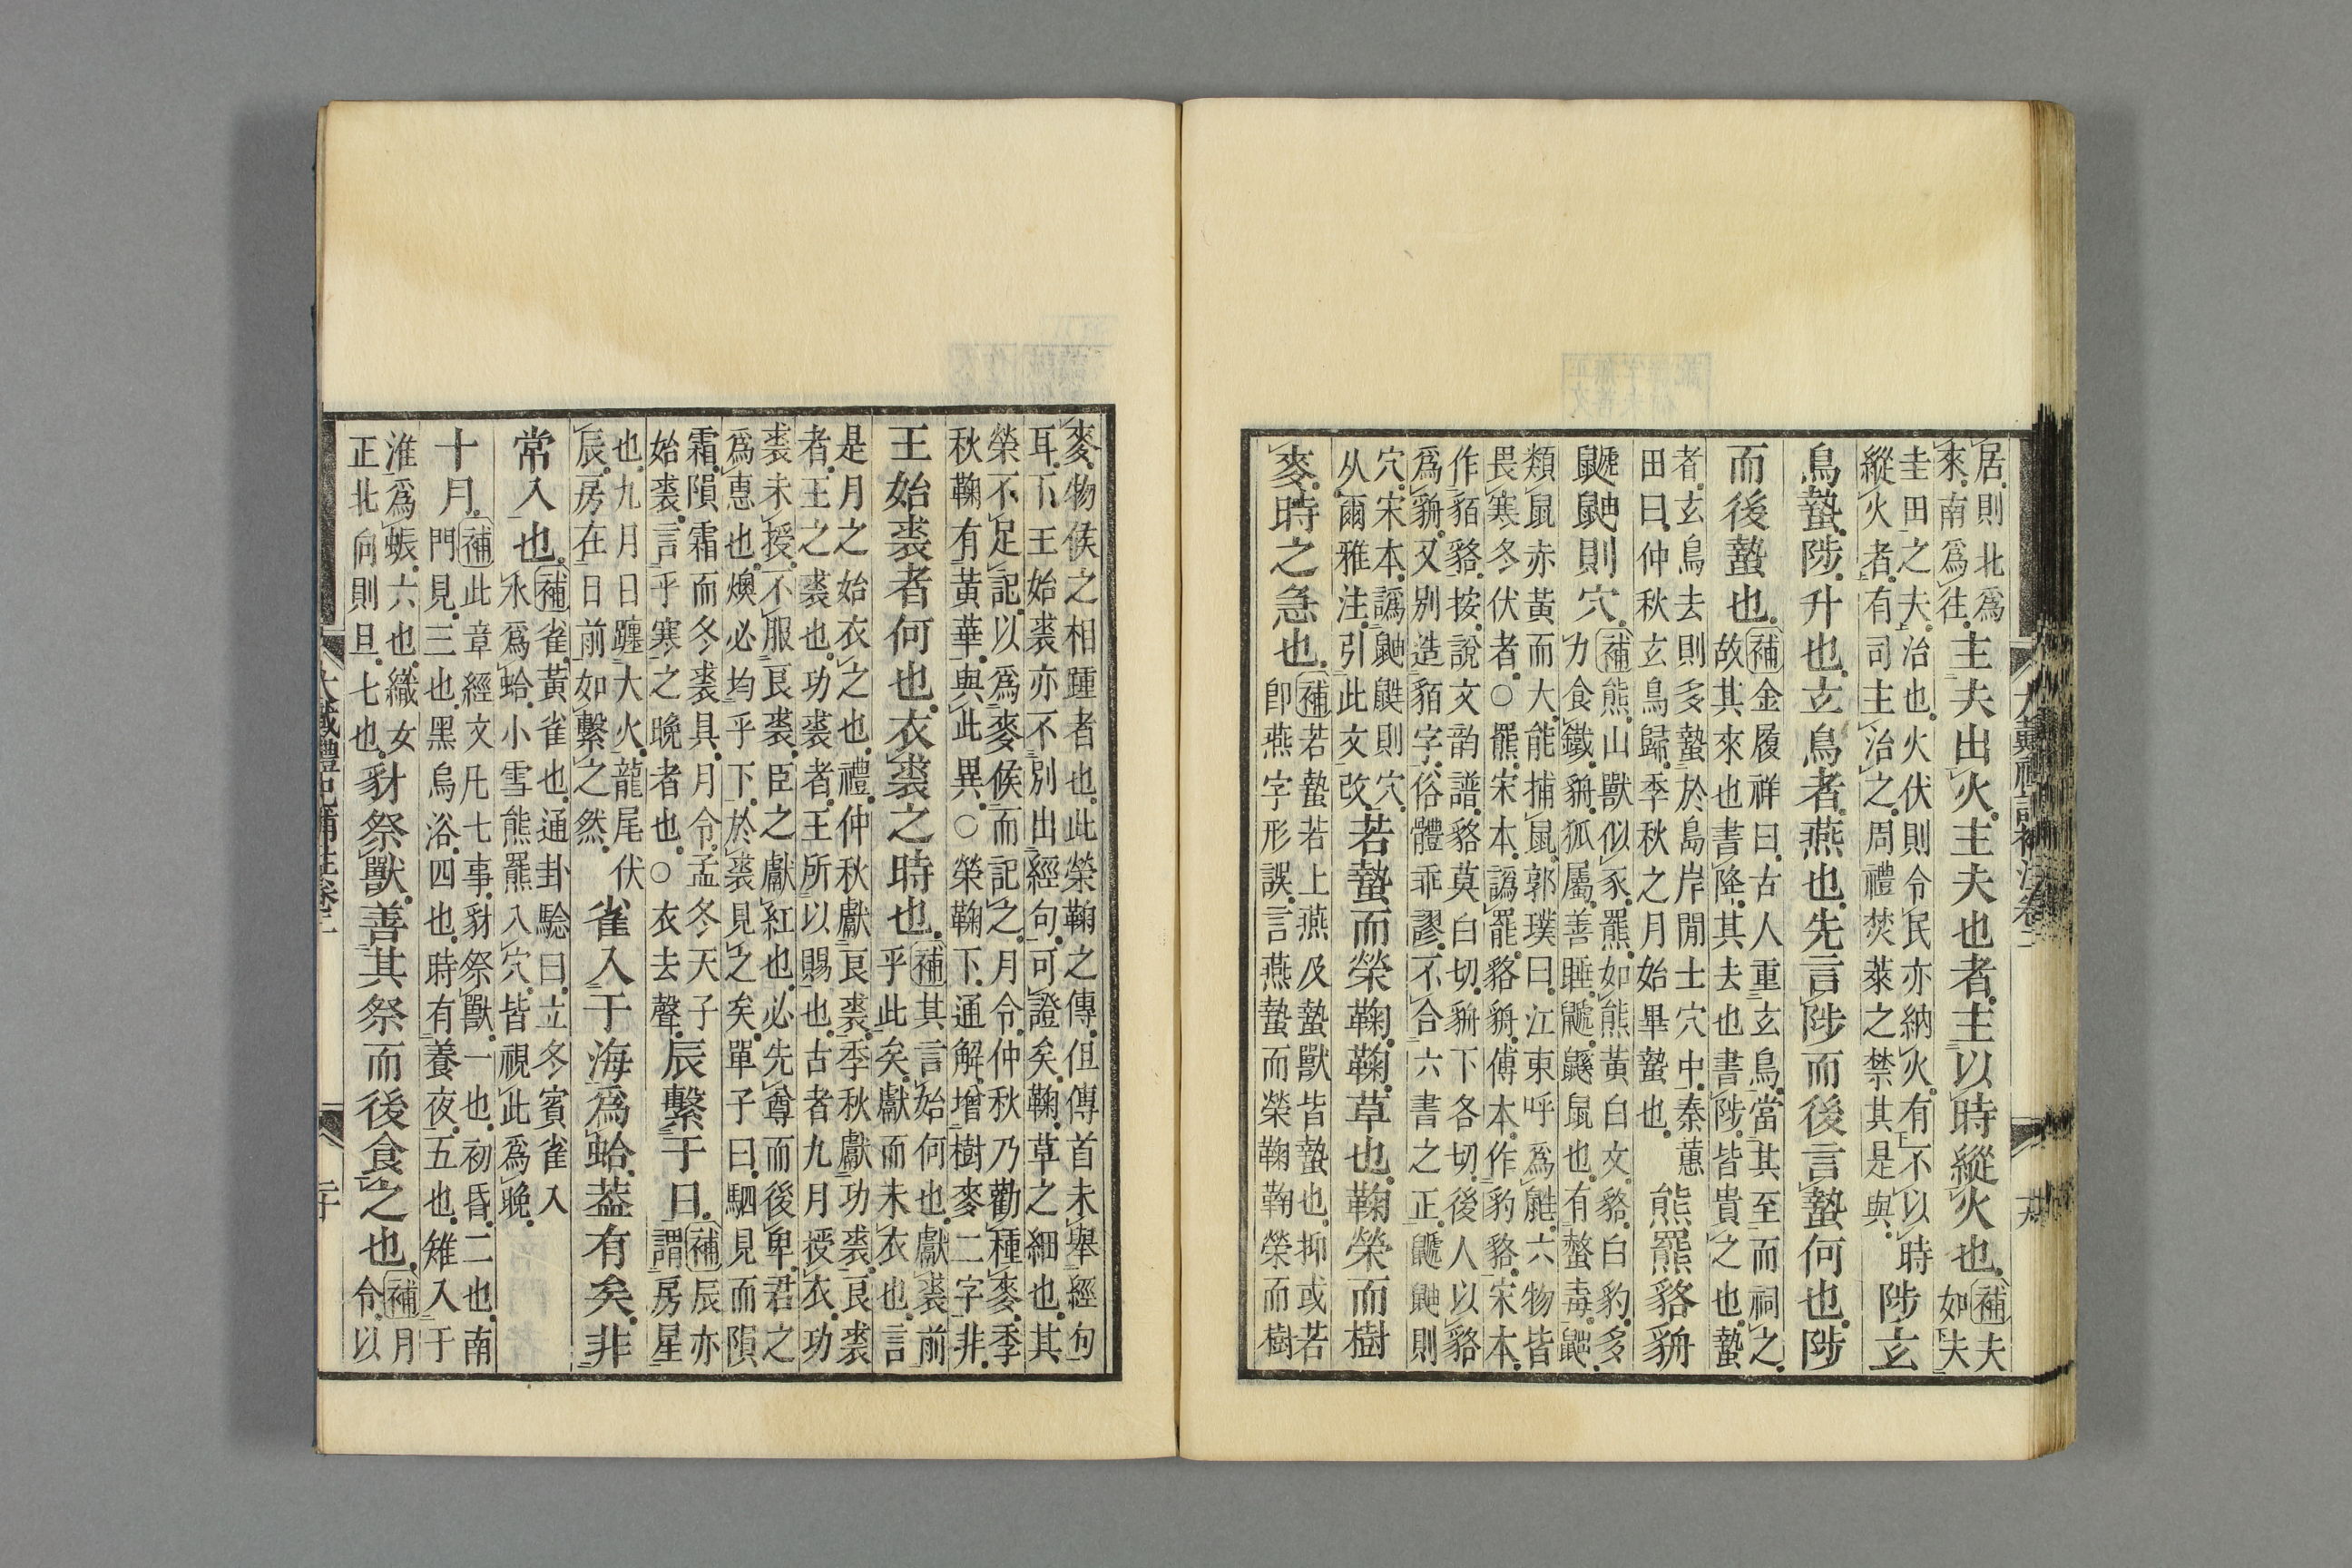 居則北爲來南爲往主夫出火主夫也者主以時縱火也補夫如夫
圭田之夫治也火伏則令民亦納火有不以時縱火者有司主治之周禮焚萊之禁其是與陟玄
鳥蟄陟升也玄鳥者燕也先言陟而後言蟄何也陟
而後蟄也補金履祥曰古人重玄鳥當其至而祠之故其來也書降其去也書陟皆貴之也蟄
者玄鳥去則多蟄於島岸閒土穴中秦蕙田曰仲秋玄鳥歸季秋之月始畢蟄也熊羆貉貈
鼶鼬則穴補熊山獸似豕羆如熊黃白文貉白豹多力食鐵貈狐屬善睡鼶鼶鼠也有螫毒鼬
類鼠赤黃而大能捕鼠郭璞曰江東呼爲鼪六物皆畏寒冬伏者○羆宋本譌罷貉貈傅本作豹貉宋本
作貊貉按說文韵譜貉莫白切貈下各切後人以貉爲貈又別造貊字俗體乖謬不合六書之正鼶鼬則
穴宋本譌鼬鼪則穴从爾雅注引此文改若蟄而榮鞠鞠草也鞠榮而樹
麥時之急也補若蟄若上燕及蟄獸皆蟄也抑或若卽燕字形誤言燕蟄而榮鞠鞠榮而樹
大戴禮記補注卷二
麥物侯之相踵者也此榮鞠之傳但傳首未舉經句
耳下王始裘亦不別出經句可證矣鞠草之細也其
榮不足記以爲麥候而記之月令仲秋乃勸種麥季
秋鞠有黃華與此異○榮鞠下通解增樹麥二字非
王始裘者何也衣裘之時也補其言始何也獻裘前乎此矣獻而未衣也言
是月之始衣之也禮仲秋獻良裘季秋獻功裘良裘
者王之裘也功裘者王所以賜也古者九月授衣功
裘未授不服良裘臣之獻紅也必先尊而後卑君之
爲惠也燠必均乎下於裘見之矣單子曰駟見而隕
霜隕霜而冬裘具月令孟冬天子始裘言乎寒之晚者也○衣去聲辰繫于日補辰亦謂房星
也九月日躔大火龍尾伏辰房在日前如繫之然雀入于海爲蛤葢有矣非
常入也補雀黃雀也通卦驗曰立冬賓雀入水爲蛤小雪熊羆入穴皆視此爲晚
十月補此章經文凡七事豺祭獸一也初昏二也南門見三也黑鳥浴四也時有養夜五也雉入于
淮爲蜃六也織女正北向則旦七也豺祭獸善其祭而後食之也補月令以
大戴禮記補注卷二
二十